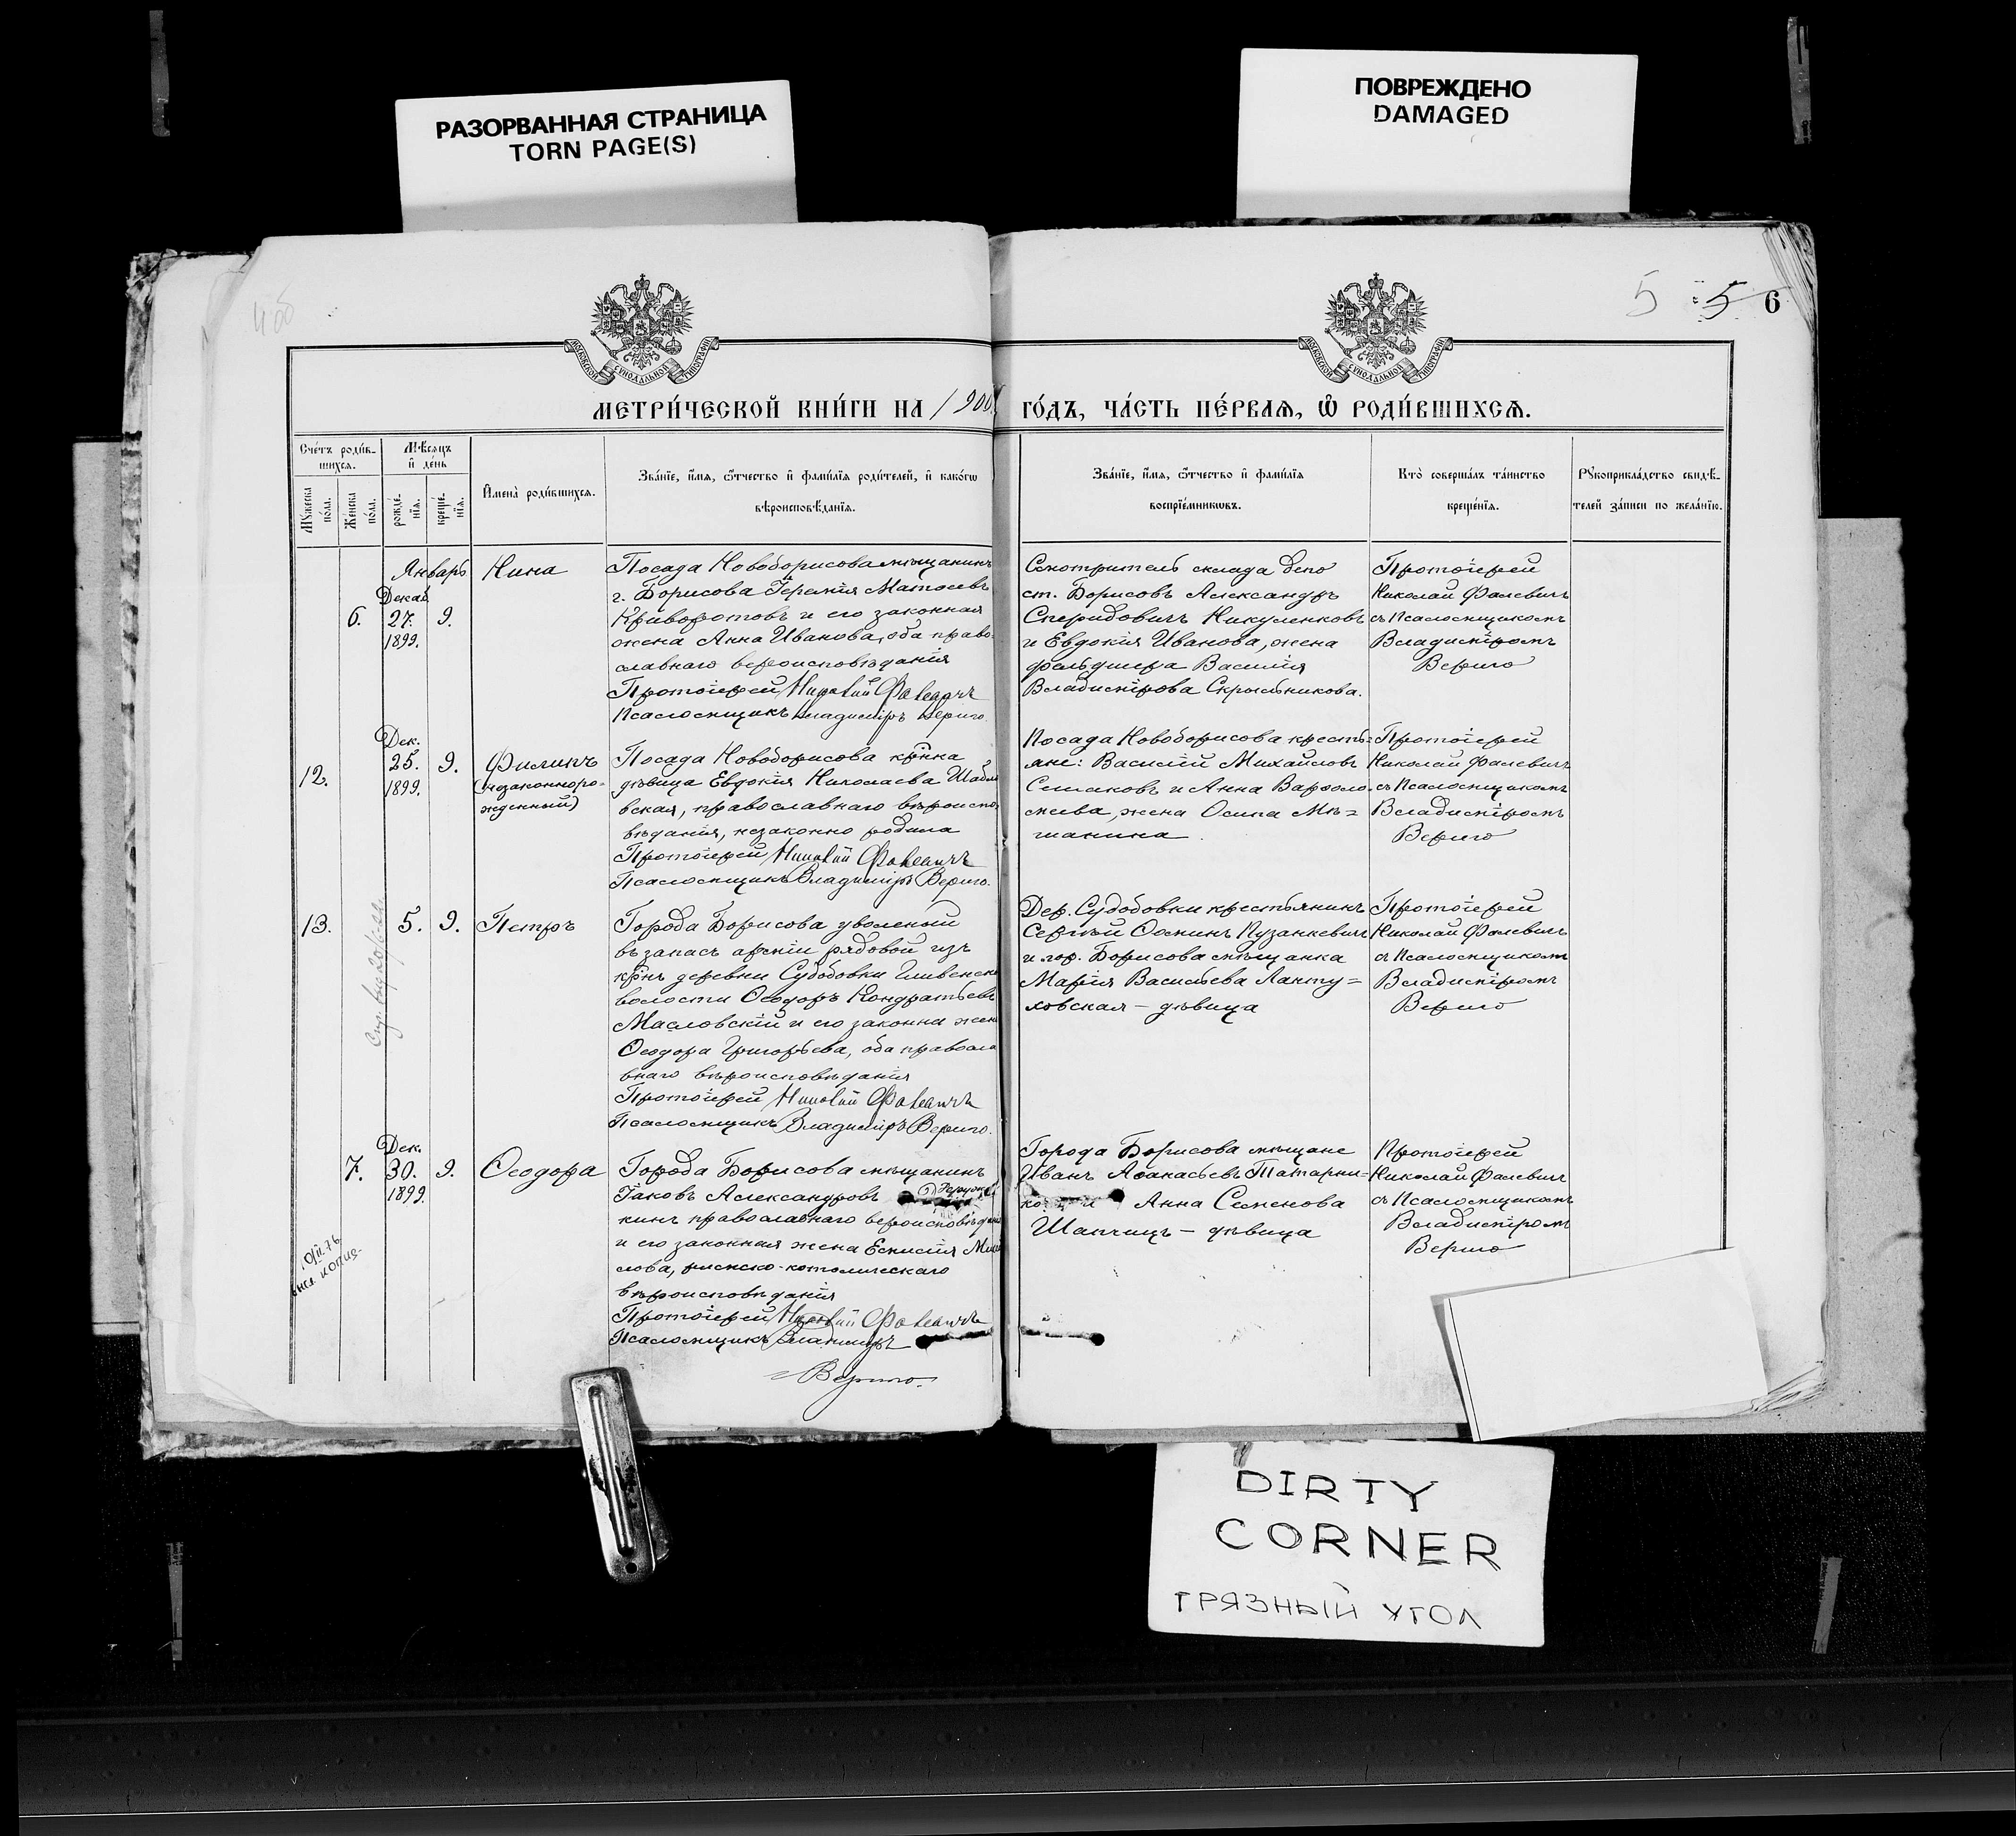 РАЗОРВАННАЯ СТРАНИЦА
TORN PAGE(S)
ПОВРЕЖДЕНО
DAMAGED
5 5 6
МОСКОВСКОЙ СѴНОДАЛЬНОЙ ТИПОГРАФІИ
МОСКОВСКОЙ СѴНОДАЛЬНОЙ ТИПОГРАФІИ
МЕТРИ́ЧЕСКОЙ КНИ́ГИ НА 1900 ГО́ДЪ, ЧА́СТЬ ПЕ́РВАѦ, Ѽ РОДИ́ВШИХСѦ.
Сче́тъ роди́в-
шихсѧ.
Мѣ́сѧцъ
и҆ де́нь
Мꙋ́жеска
по́ла.
Же́нска
по́ла.
рожде́-
нїѧ.
креще́-
нїѧ.
И҆мена̀ роди́вшихсѧ.
Зва́нїе, и҆́мѧ, ѻ҆́тчество и҆ фами́лїѧ роди́телей, и҆ како́гѡ
вѣроисповѣ́данїѧ.
Зва́нїе, и҆́мѧ, ѻ҆́тчество и҆ фами́лїѧ
воспрїе́мникѡвъ.
Кто̀ соверша́лъ та́инство
креще́нїѧ.
Рꙋкоприкла́дство свидѣ́-
телей за́писи по жела́нїю.
Январь
6.
27.
1899.
9.
Нина
Посада Новоборисова мѣщанинъ
г. Борисова Матѳеевъ
Криворотовъ и его законная
жена Анна Иванова, оба право-
славнаго вероисповѣданія
Протоіерей Николай Фалевичъ
Псаломщикъ Владиміръ Вериго.
Смотритель склада депо
ст. Борисовъ Александръ
Спиридовичъ Никуленковъ
и Евдокія Иванова, жена
фельдшера Василія
Владимірова Скрыльникова.
Протоіерей
Николай Фалевичъ
съ Псаломщикомъ
Владиміромъ
Вериго
12.
Дек.
25.
1899.
9.
Филипъ
(незаконноро-
жденный)
Посада Новоборисова кр̄нка
дѣвица Евдокія Николаева
вская, православнаго вѣроиспо
вѣданія, незаконно родила
Протоіерей Николай Фалевичъ
Псаломщикъ Владиміръ Вериго.
Посада Новоборисова кресть=
яне: Василій Михайловъ
и Анна Варѳоло
меева, жена Осипа Мѣ=
шанина.
Протоіерей
Николай Фалевичъ
съ Псаломщикомъ
Владиміромъ
Вериго
13.
5.
9.
Петръ
Города Борисова уволеный
въ запасъ арміи рядовой изъ
кр̄нъ деревни Судобовки
волости Ѳеодоръ Кондратьевъ
Масловскій и его законна жена
Ѳеодора Григорьева, оба правосла
внаго вѣроисповѣданія
Протоіерей Николай Фалевичъ
Псаломщикъ Владиміръ Вериго.
Дер. Судобовки крестьянинъ
Сергѣй Пузанкевичъ
и гор. Борисова мѣщанка
Марія Васильева Ланту=
ховская - дѣвица
Протоіерей
Николай Фалевичъ
съ Псаломщикомъ
Владиміромъ
Вериго
7.
Дек.
30.
1899.
9.
Ѳеодора
Города Борисова мѣщанинъ
Іаковъ Александровъ
кинъ православнаго вероисповѣдан
и его законная жена
лова, римско-католическаго
вѣроисповѣданія
Протоіерей Николай Фалевичъ
Псаломщикъ Владиміръ
Вериго.
Города Борисова мѣщане
Иванъ Аѳанасьевъ Татарни=
ко и Анна Семенова
Шапчицъ - дѣвица
Протоіерей
Николай Фалевичъ
съ Псаломщикомъ
Владиміромъ
Вериго
DIRTY
CORNER
ГРЯЗНЫЙ УГОЛ